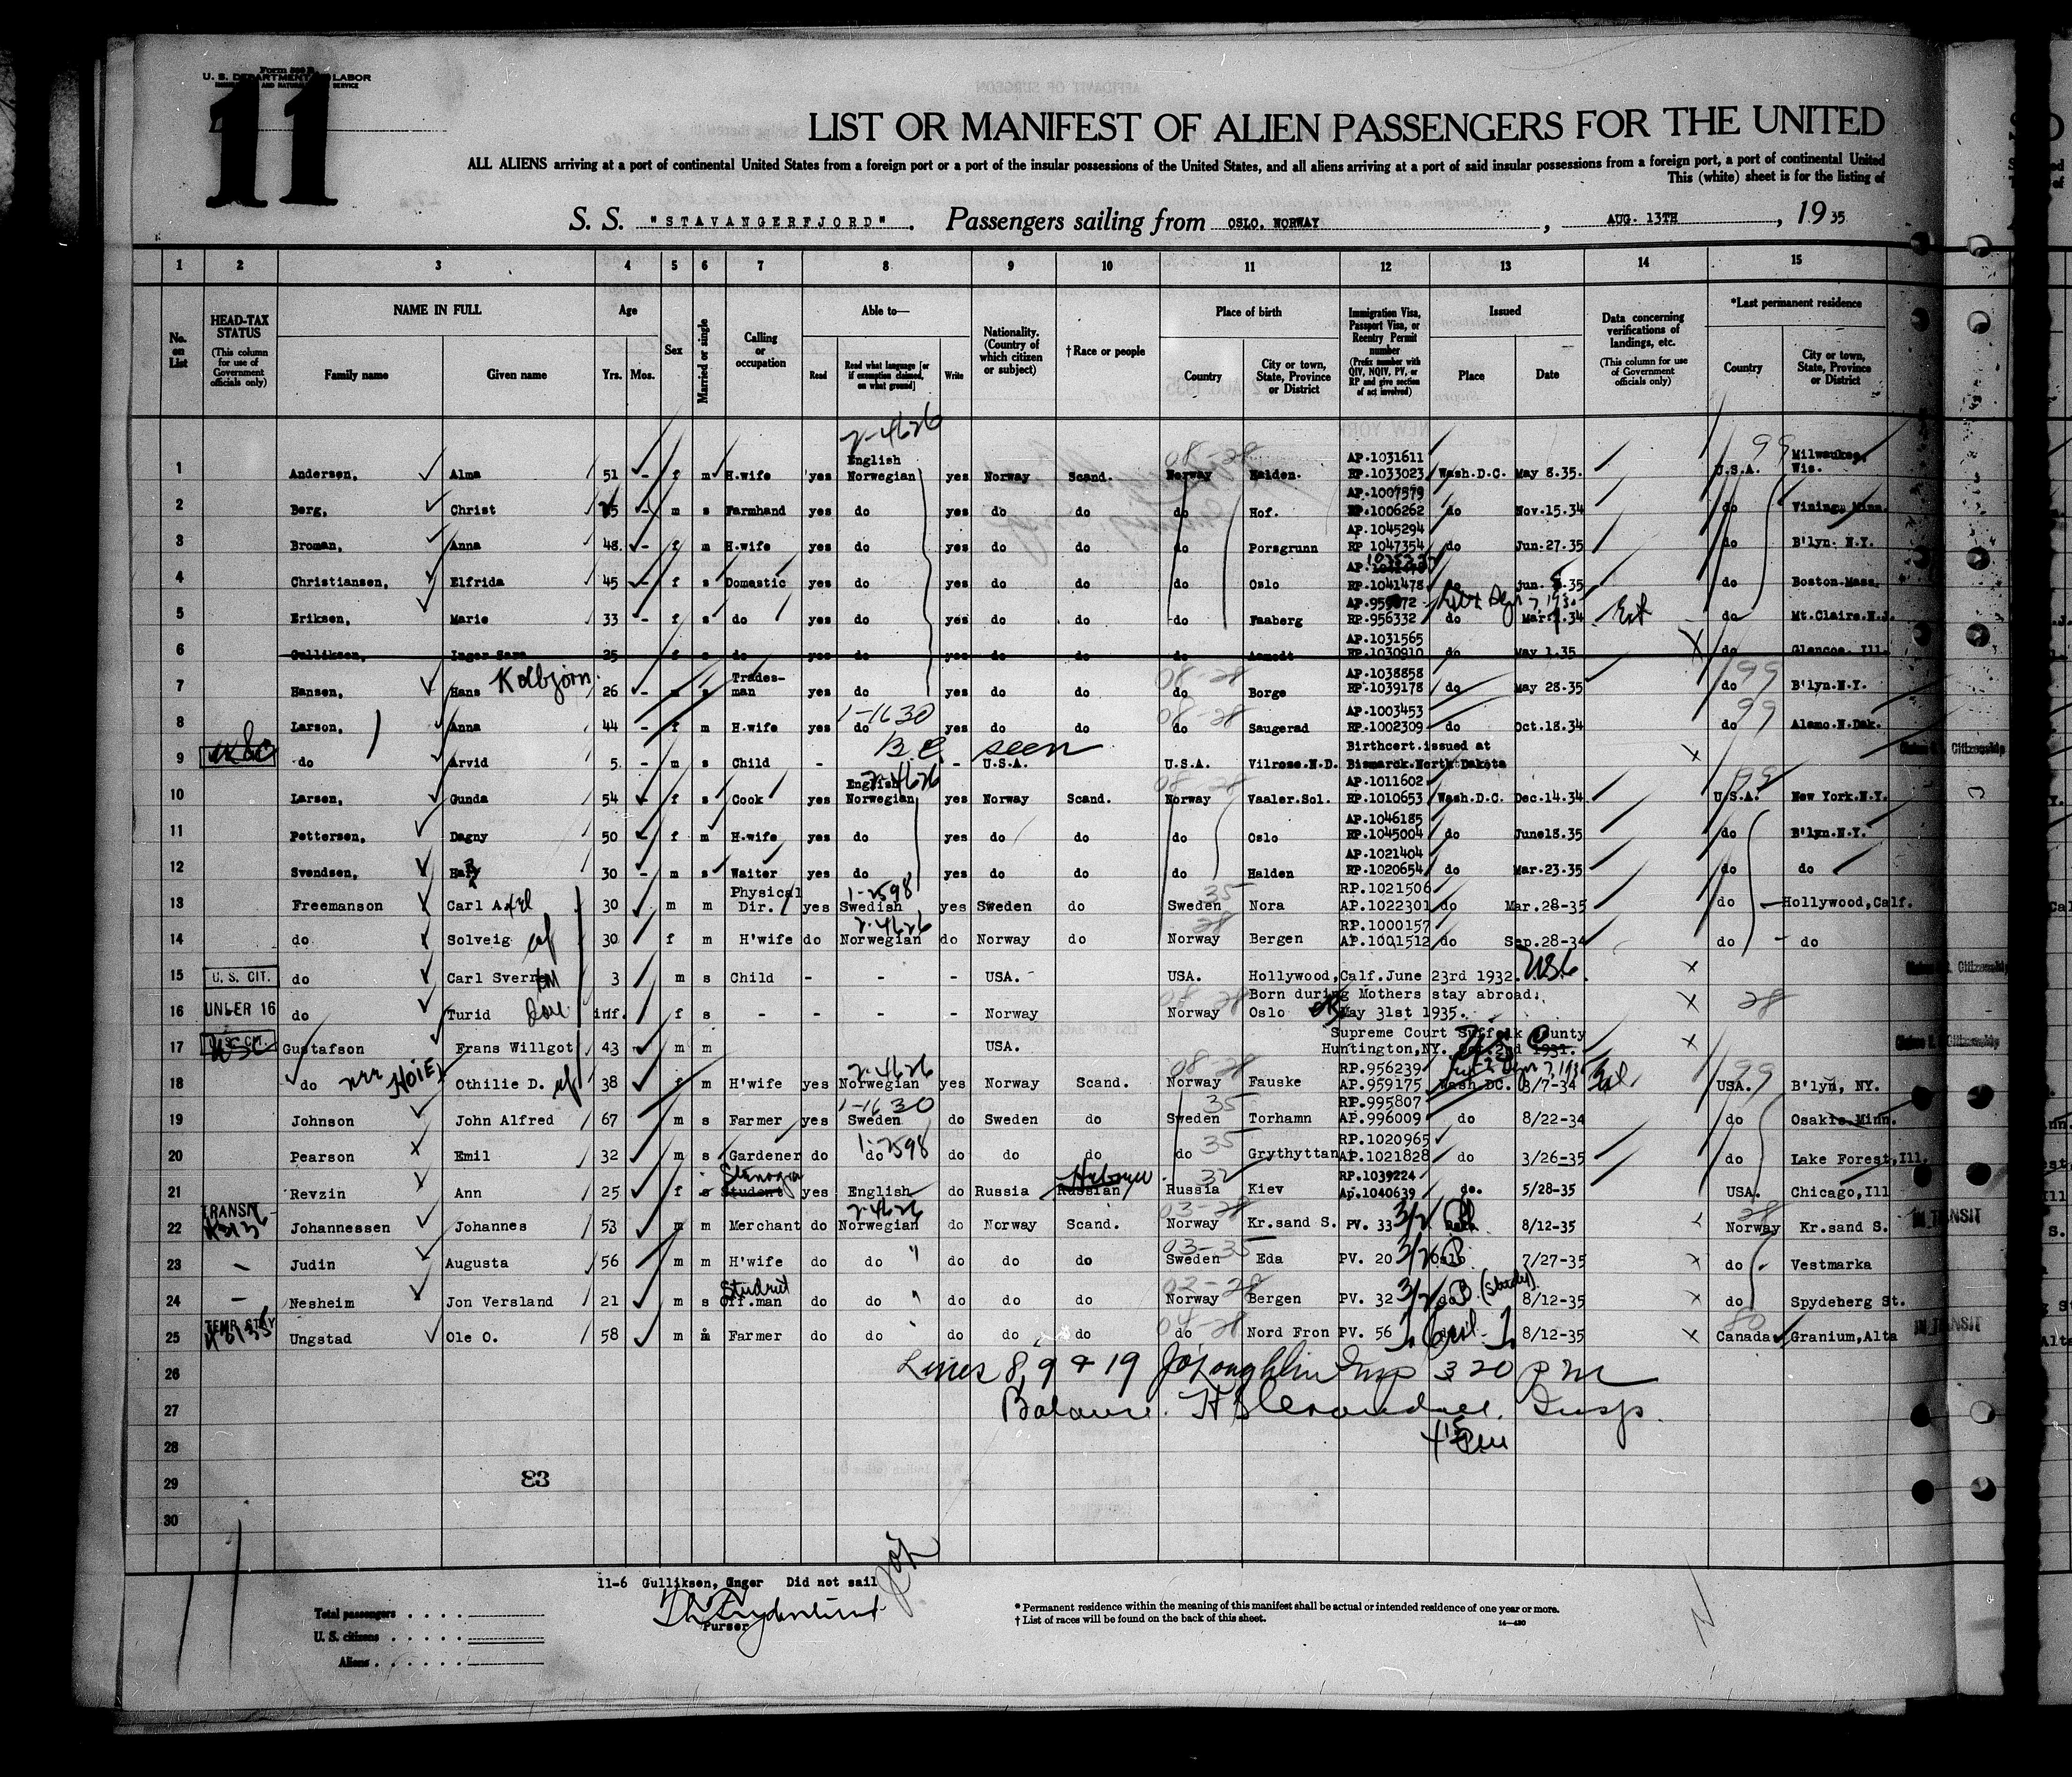 Form 500 B
U. S. DEPARTMENT OF LABOR
IMMIGRATION AND NATURALIZATION SERVICE
11
LIST OR MANIFEST OF ALIEN PASSENGERS FOR THE UNITED
ALL ALIENS arriving at a port of continental United States from a foreign port or a port of the insular possessions of the United States, and all aliens arriving at a port of said insular possessions from a foreign port, a port of continental United
This (white) sheet is for the listing of
S. S. "STAVANGERFJORD". Passengers sailing from OSLO. NORWAY, AUG. 13TH, 1935
1 2 3 4 5 6 7 8 9 10 11 12 13 14 15
No. on List
HEAD-TAX STATUS (This column for use of Government officials only)
NAME IN FULL Family name Given name
Age Yrs. Mos.
Sex
Married or single
Calling or occupation
Able to— Read Read what language [or if exemption claimed, on what ground] Write
Nationality. (Country of which citizen or subject)
†Race or people
Place of birth Country City or town, State, Province or District
Immigration Visa, Passport Visa, or Reentry Permit number (Prefix number with QIV, NQIV, PV, or RP and give section of act involved)
Issued Place Date
Data concerning verifications of landings, etc. (This column for use of Government officials only)
*Last permanent residence Country City or town, State, Province or District
2-4626 08-28 99
1 Andersen, Alma 51 - f m H.wife yes English Norwegian yes Norway Scand. Norway Halden. AP.1031611 RP.1033023 Wash.D.C. May 8.35. U.S.A. Milwaukee, Wis.
2 Berg, Christ - m s Farmhand yes do yes do do do Hof. AP.1007579 RP.1006262 do Nov.15.34 do Vining. Minn.
3 Broman, Anna 48. - f m H.wife yes do yes do do do Porsgrunn AP.1045294 RP 1047354 do Jun.27.35 do B'lyn. N.Y.
4 Christiansen, Elfrida 45 - f s Domestic yes do yes do do do Oslo AP. RP.1041478 do Jun. .35 do Boston.Mass.
5 Eriksen, Marie 33 - f s do yes do yes do do do Faaberg AP. RP.956332 do Mar. .34 Ext do Mt.Claire.N.J.
6 Gulliksen, Inger Sara 25 f s do yes do yes do do do Asmedt AP.1031565 RP.1030910 do May 1.35 do Glencoe. Ill.
7 Hansen, Hans Kolbjorn. 26 - m s Trades-man yes do yes do do 08-28 do Borge AP.1038858 RP.1039178 do May 28.35 99 do B'lyn.N.Y.
8 Larson, Anna 44 - f m H.wife yes 1-1630 do yes do do 08-28 do Saugerad AP.1003453 RP.1002309 do Oct.18.34 99 do Alamo.N.Dak.
9 do Arvid 5. - m s Child - B.C. seen - U.S.A. U.S.A. Vilrose.N.D. Birthcert.issued at Bismarck.North Dakota
10 Larsen, Gunda 54 - f s Cook yes English 2-4626 Norwegian yes Norway Scand. 08-28 Norway Vaaler.Sol. AP.1011602 RP.1010653 Wash.D.C. Dec.14.34 99 U.S.A. New York.N.Y.
11 Pettersen, Dagny 50 - f m H.wife yes do yes do do do Oslo AP.1046185 RP.1045004 do June18.35 do B'lyn.N.Y.
12 Svendsen, 30 - m s Waiter yes do yes do do do Halden AP.1021404 RP.1020654 do Mar.23.35 do do
13 Freemanson Carl Axel 30 m m Physical Dir. yes 1-2598 Swedish yes Sweden do 35 Sweden Nora RP.1021506 AP.1022301 do Mar.28-35 do Hollywood,Calf.
14 do Solveig 30 f m H'wife do 2-4626 Norwegian do Norway do 28 Norway Bergen RP.1000157 AP.1001512 do Sep.28-34 do - do
15 U. S. CIT. do Carl Sverre 3 m s Child - - - USA. USA. Hollywood,Calf.June 23rd 1932. USC
16 UNDER 16 do Turid inf. f s - - - - Norway 08-28 Norway Oslo Born during Mothers stay abroad. May 31st 1935. 28
17 U. S. CIT. Gustafson Frans Willgot 43 m m USA. Supreme Court Suffolk County Huntington,NY. Oct.2nd 1931.
18 do nee HOIE Othilie D. 38 f m H'wife yes 2-4626 Norwegian yes Norway Scand. 08-28 Norway Fauske RP.956239 AP.959175 Wash DC. 8/7-34 Ext. 99 USA. B'lyn, NY.
19 Johnson John Alfred 67 m s Farmer yes 1-1630 Sweden do Sweden do 35 Sweden Torhamn RP.995807 AP.996009 do 8/22-34 do Osakis.Minn.
20 Pearson Emil 32 m s Gardener do 1-2598 do do do do 35 do Grythyttan RP.1020965 AP.1021828 do 3/26-35 do Lake Forest,Ill.
21 Revzin Ann 25 f s Student Stenogra yes English do Russia Russian Hebrew 32 Russia Kiev RP.1039224 Ap.1040639 do. 5/28-35 USA. Chicago,Ill
22 TRANSIT Johannessen Johannes 53 m m Merchant do 2-4626 Norwegian do Norway Scand. 03-28 Norway Kr.sand S. PV. 33 3/2 8/12-35 28 Norway Kr.sand S. IN TRANSIT
23 - Judin Augusta 56 m m H'wife do do " do do do 03-35 Sweden Eda PV. 20 3/2 Oslo 7/27-35 do Vestmarka
24 - Nesheim Jon Versland 21 m s Off.man Student do do " do do do 02-28 Norway Bergen PV. 32 3/2 do B (Study) 8/12-35 do Spydeberg St.
25 TEMP STAY Ungstad Ole O. 58 m m Farmer do do do do do 04-28 do Nord Fron PV. 56 8/12-35 80 Canada Granium,Alta IN TRANSIT
26 Lines 8, 9 & 19 Insp 3 20 PM
27 Balance. Insp.
28 4 15 PM
29 83
30
11-6 Gulliksen, Inger Did not sail
Purser
Total passengers . . . .
U. S. citizens . . . . .
Aliens . . . . . .
* Permanent residence within the meaning of this manifest shall be actual or intended residence of one year or more.
† List of races will be found on the back of this sheet.
14—430